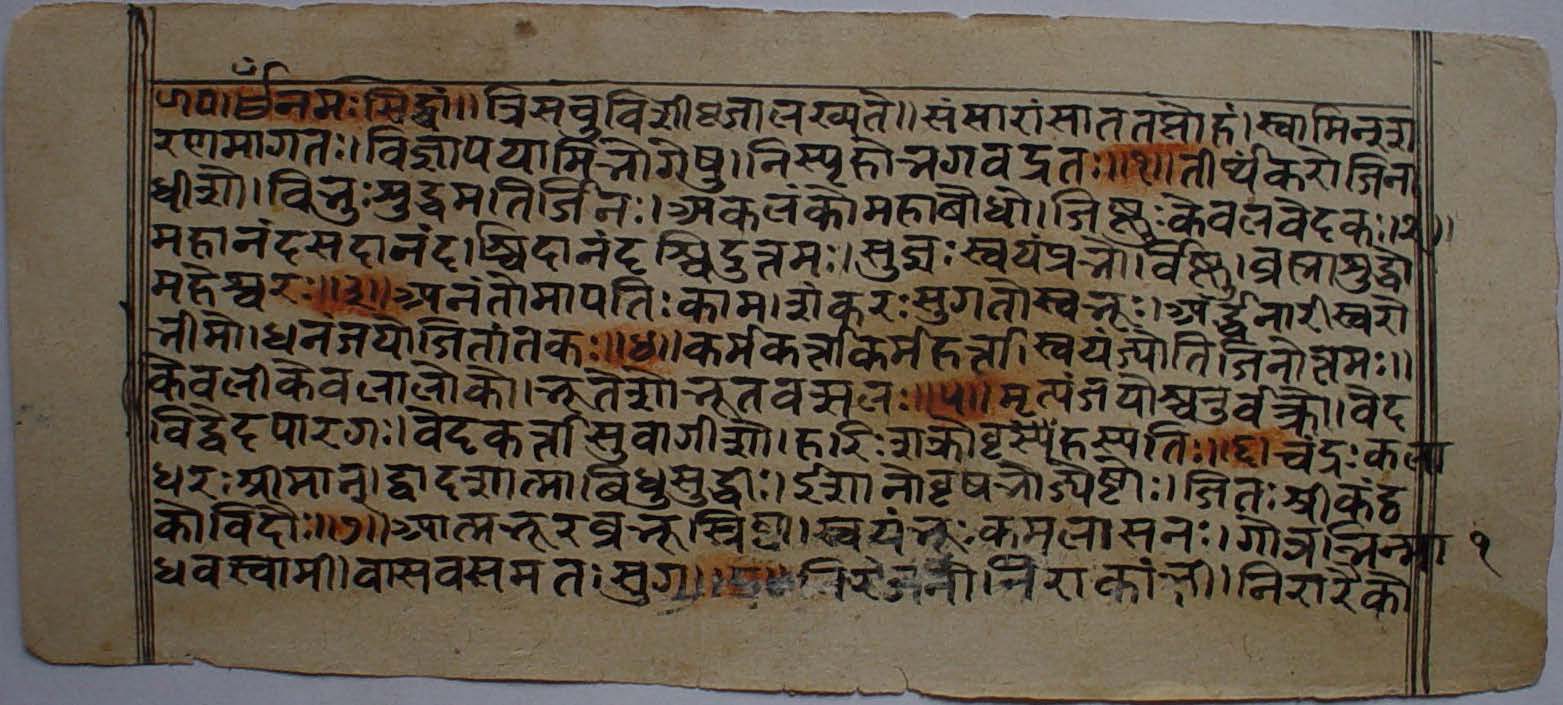 ॥ॐनमःसिद्धां॥त्रिसचुविशीष्टजालख्यते॥संसारांसाततप्तोहं।स्वामिनशरा
रणमागतः।विज्ञापयामिभोगेषु।निस्पृहोभगवद्रतः॥१॥तीर्थंकरोजिना
धीशो।विभुःसुद्धमतिर्जिनः।अकलंकोमहाबोधो।जिष्णुःकेवलवेदकः॥२॥
महानंदसदानंद।श्चिदानंदश्चिदुत्तमः।सुद्धःस्वयंप्रभोर्विष्णु।ब्रह्माशुद्धो
महेश्वरः॥३॥अनंतोमापतिःकाम।शंकरःसुगतोस्वभूः।अर्द्धनारीस्वरो
भीमो।धनंजयोजितांतकः॥४॥कर्मकर्त्ताकर्महर्त्ता।स्वयंज्योतिर्जिनोत्तमः॥
केवलीकेवलालोको।भूतेशोभूतवत्सलः॥५॥मृत्युंजयोश्चतुर्वक्रो।वेद
विद्वेदपारगः।वेदकर्त्तासुवागीशो।हरिःशक्रोवृहस्पतिः॥६॥चंद्रःकला
धरःश्रीमान्।द्वादशात्माबिधुसुद्धीः।ईशानोवृषभोज्येष्टोः।जितःश्रीकंठ
कोविदोः॥७॥आत्मभूरब्रभूस्विष्टा।स्वयंभूःकमलासनः।गोत्रभिन्मा १
धवस्वामी।वासवसमतःसुग॥८॥निरंजनोनिराकांक्षी।निरारेको